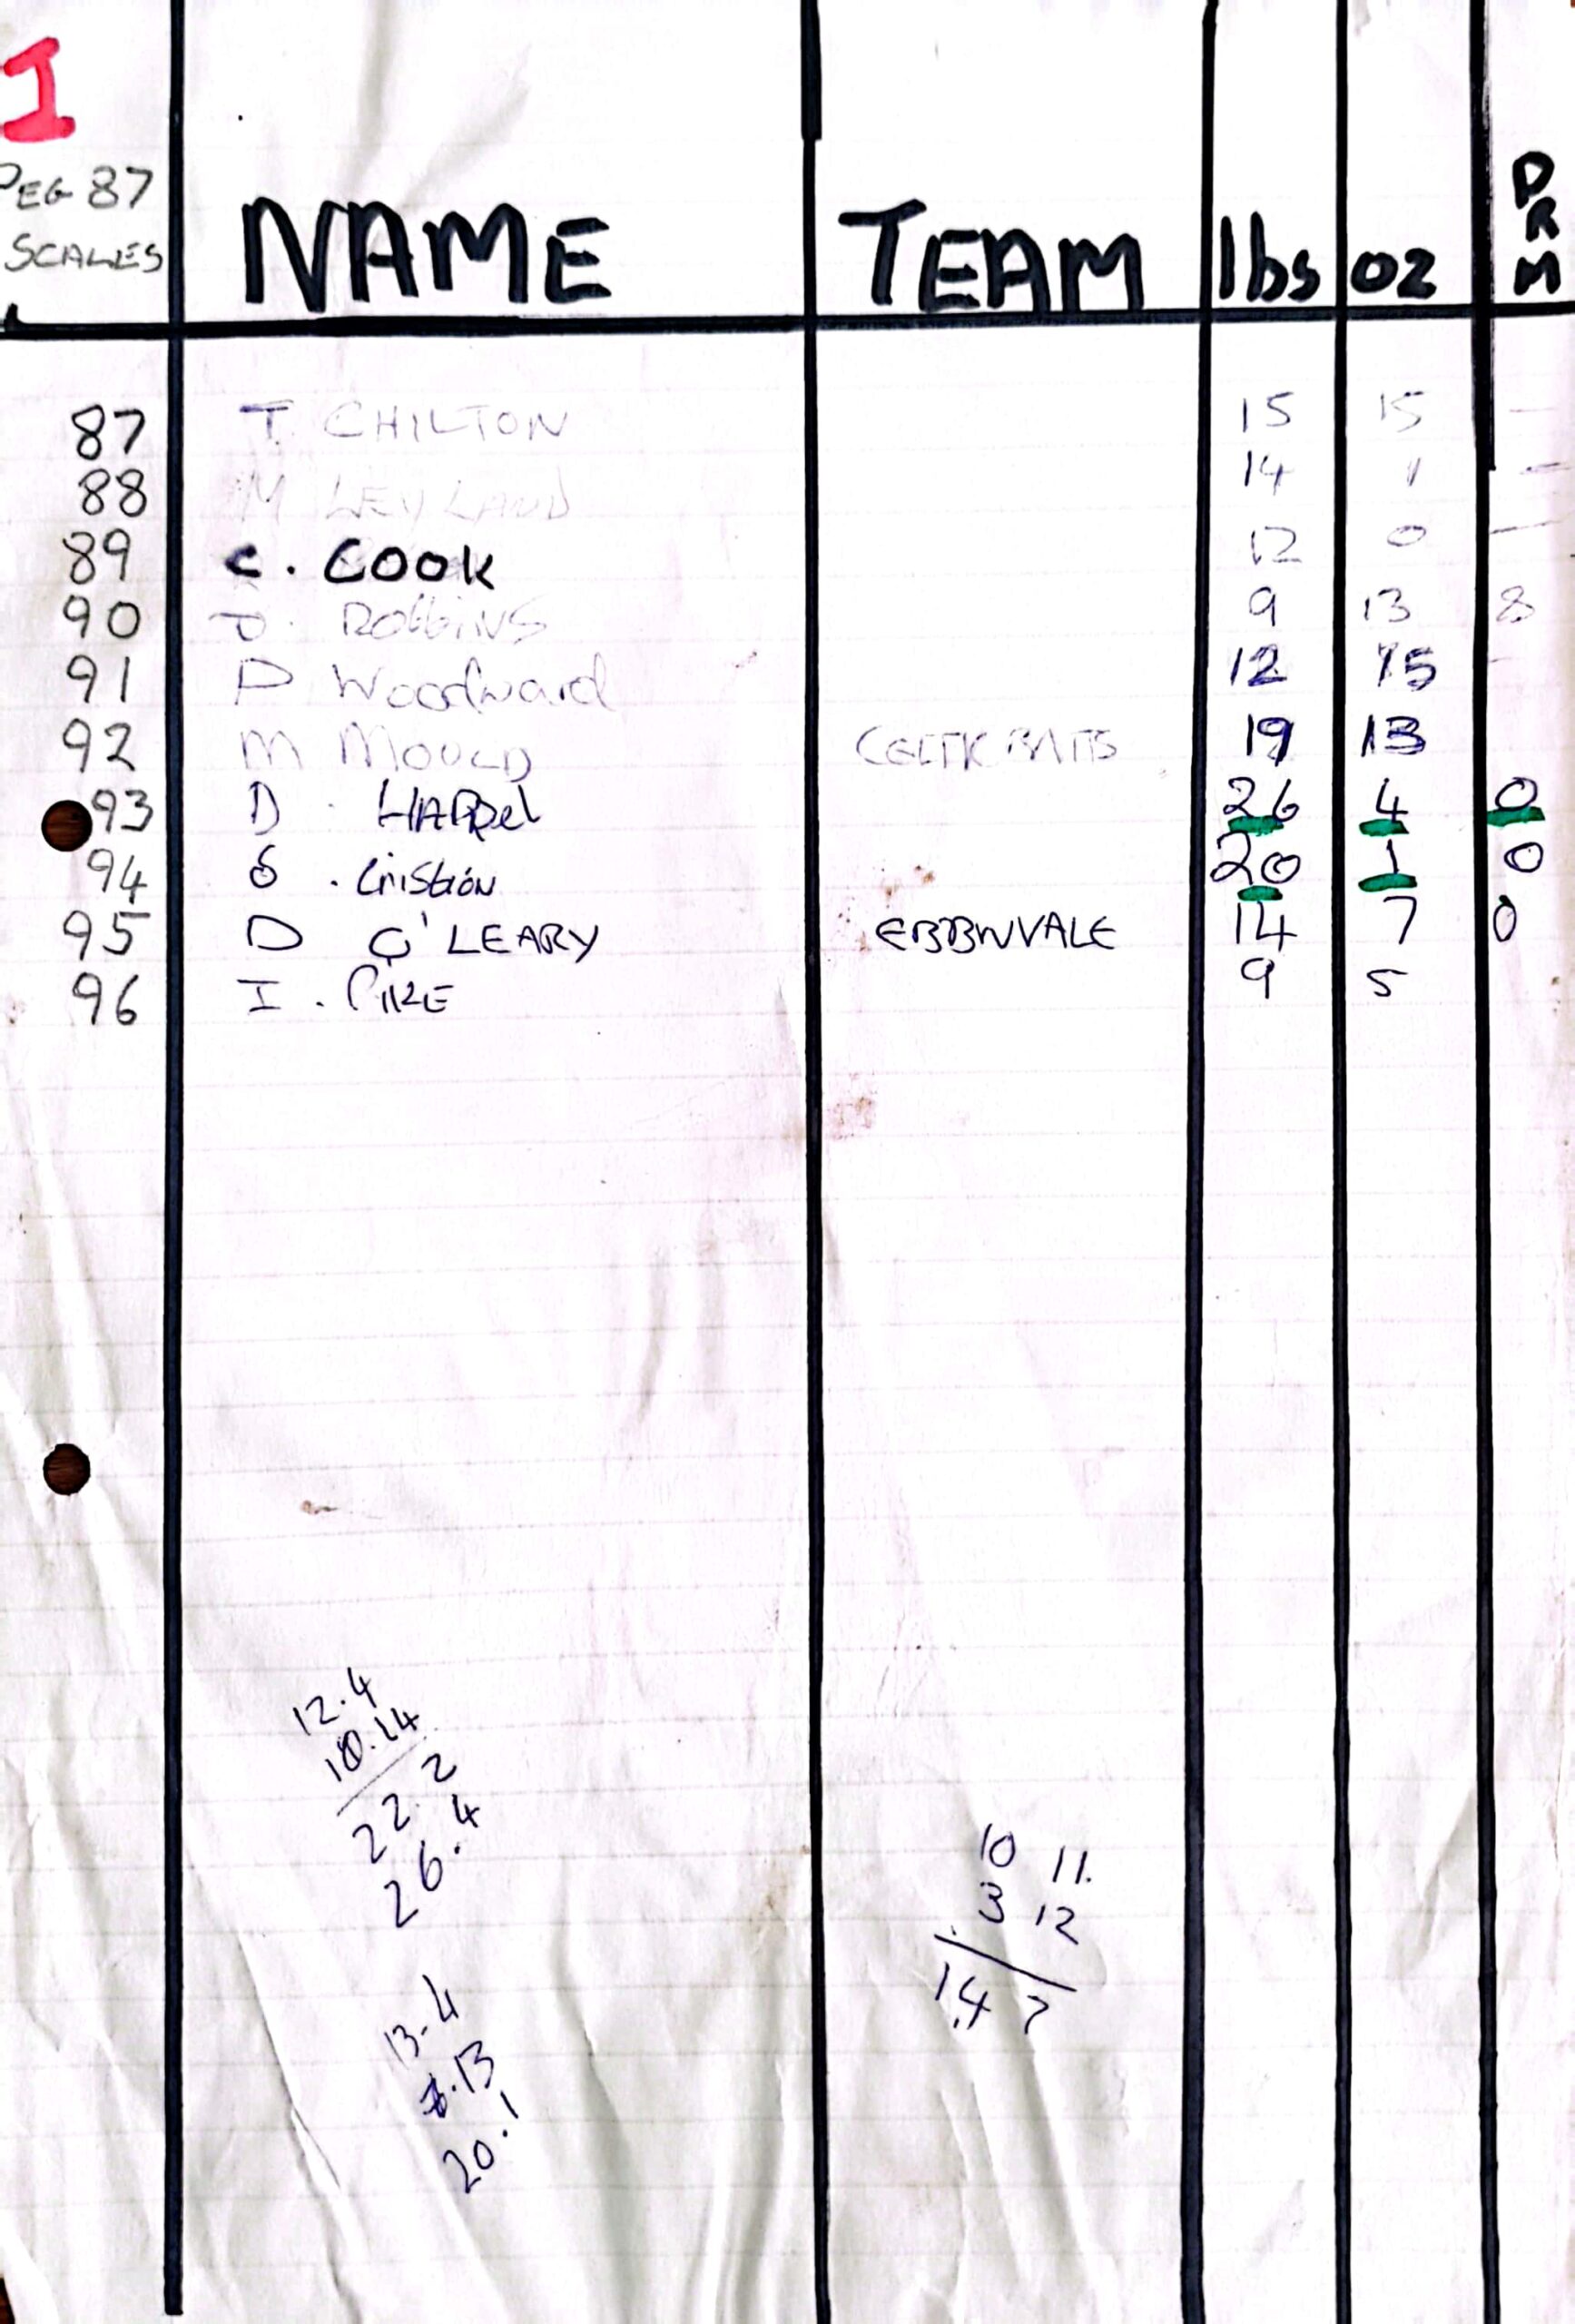 I
PEG 87
SCALES
NAME TEAM lbs oz DRM
87 T. CHILTON 15 15 -
88 M LEYLAND 14 1 -
89 C. COOK 12 0 -
90 P. Robbins 9 13 8
91 P Woodward 12 15 -
92 M MOULD CELTIC BAITS 19 13
93 D. 26 4 0
94 20 1 0
95 D O'LEARY EBBWVALE 14 7 0
96 I. 9 5
12.4
10.14
22.2
26.4
10 11.
3 12
14 7
13.4
.13
20.1